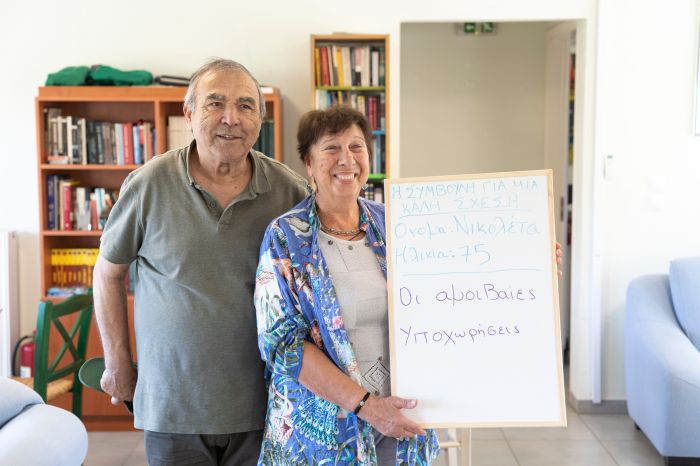 Η ΣΥΜΒΟΥΛΗ ΓΙΑ ΜΙΑ
ΚΑΛΗ ΣΧΕΣΗ
Όνομα: Νικολέτα
Ηλικία: 75
Οι αμοιΒαίες
Υποχωρήσεις